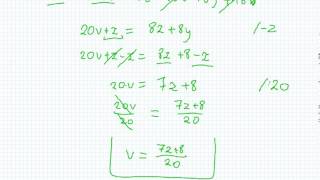 20v+z = 8z+8y /-z
20v+z-z = 8z+8-z
20v = 7z+8 /:20
20v/20 = 7z+8/20
v = 7z+8/20